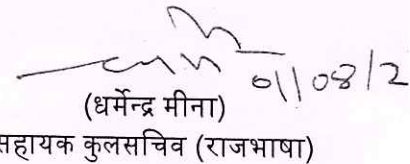 01/08/2
(धर्मेन्द्र मीना)
सहायक कुलसचिव (राजभाषा)